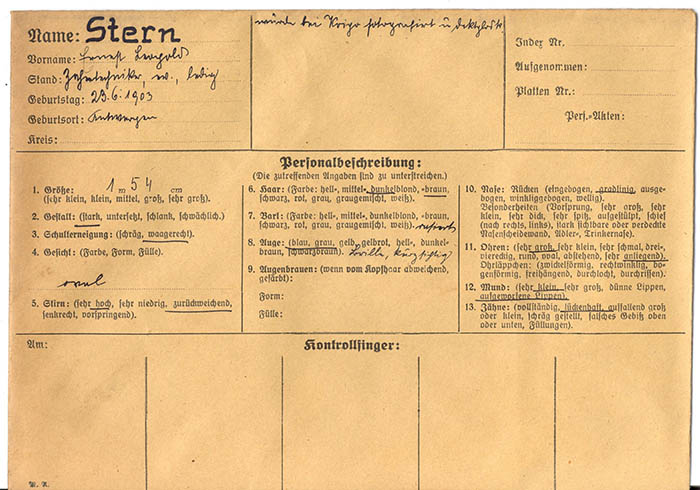 Name: Stern
Vorname: Ernest Leopold
Stand: Zahntechniker, ev., ledig
Geburtstag: 23.6.1903
Geburtsort: Antwerpen
Kreis:
wurde bei Kripo fotografiert u.
Index Nr.
Aufgenommen:
Platten Nr.:
Pers.-Akten:
Personalbeschreibung:
(Die zutreffenden Angaben sind zu unterstreichen.)
1. Größe: 1 m 54 cm
(sehr klein, klein, mittel, groß, sehr groß).
2. Gestalt: (stark, untersetzt, schlank, schwächlich.)
3. Schulterneigung: (schräg, waagerecht).
4. Gesicht: (Farbe, Form, Fülle).
oval
5. Stirn: (sehr hoch, sehr niedrig, zurückweichend,
senkrecht, vorspringend).
6. Haar: (Farbe: hell-, mittel-, dunkelblond, -braun,
schwarz, rot, grau, graugemischt, weiß).
7. Bart: (Farbe: hell-, mittel-, dunkelblond, -braun,
schwarz, rot, grau, graugemischt, weiß.) rasiert
8. Auge: (blau, grau, gelb, gelbrot, hell-, dunkel-
braun, schwarzbraun). Brille, kurzsichtig
9. Augenbrauen: (wenn vom Kopfhaar abweichend,
gefärbt):
Form:
Fülle:
10. Nase: Rücken (eingebogen, gradlinig, ausge-
bogen, winkliggebogen, wellig).
Besonderheiten (Vorsprung, sehr groß, sehr
klein, sehr dick, sehr spitz, aufgestülpt, schief
(nach rechts, links), stark sichtbare oder verdeckte
Nasenscheidewand, Adler-, Trinkernase).
11. Ohren: (sehr groß, sehr klein, sehr schmal, drei-,
viereckig, rund, oval, abstehend, sehr anliegend).
Ohrläppchen: (zwickelförmig, rechtwinklig, bo-
genförmig, freihängend, durchlocht, durchrissen).
12. Mund: (sehr klein, sehr groß, dünne Lippen,
aufgeworfene Lippen).
13. Zähne: (vollständig, lückenhaft, auffallend groß
oder klein, schräg gestellt, falsches Gebiß oben
oder unten, Füllungen).
Am:
Kontrollfinger: